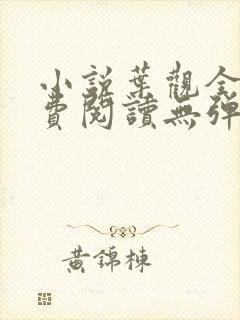 小說葉觀全
費閱讀無彈
黃錦棟